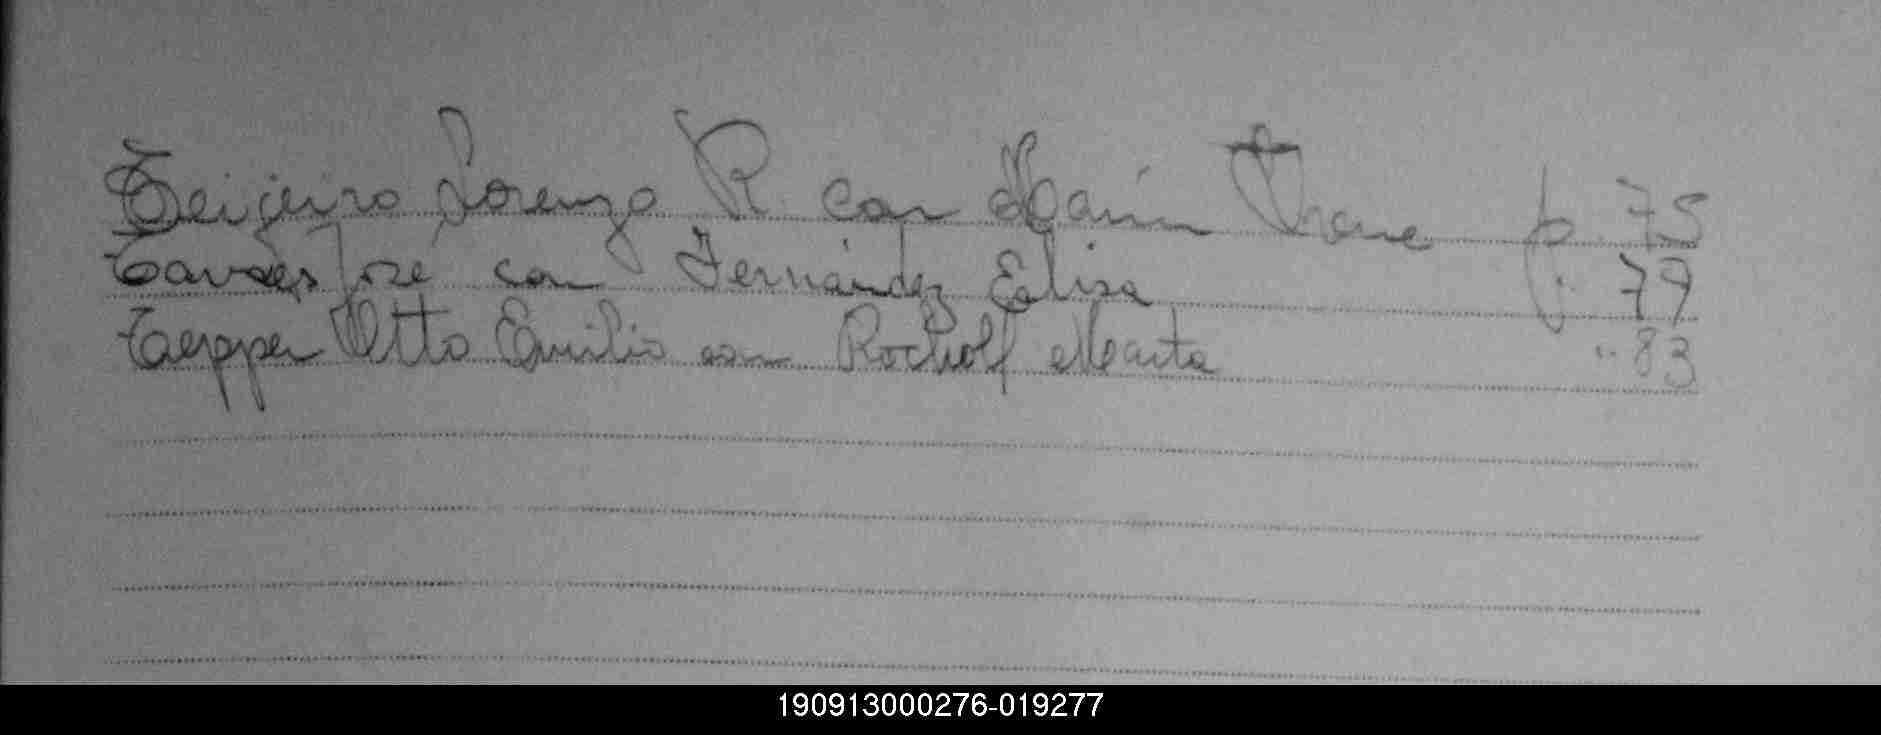 Teijeiro Lorenzo R con Marín Irene p. 75
José con Fernández Elisa 79
Taepper Otto Emilio con Rocholf Marta " 83
190913000276-019277